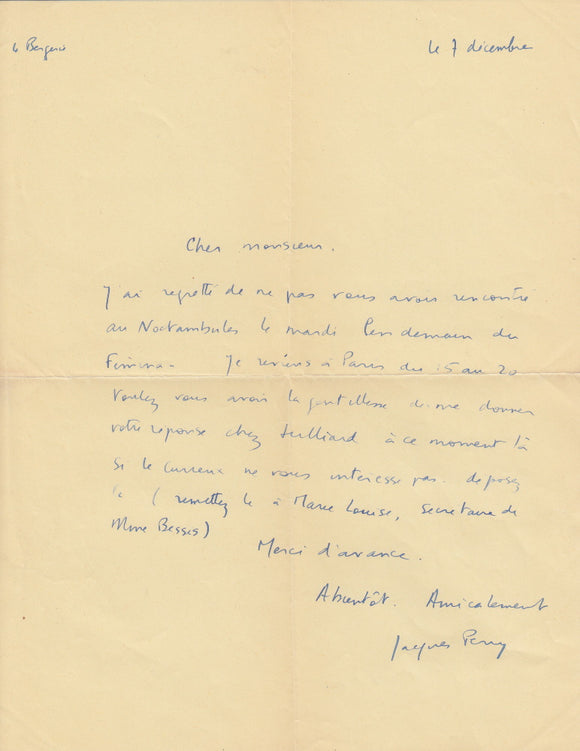 Bergerie
le 7 décembre
Cher monsieur.
J'ai regretté de ne pas vous avoir rencontré
au Noctambules le mardi lendemain du
Femina. Je reviens à Paris du 15 au 20
Voulez vous avoir la gentillesse de me donner
votre reponse chez Julliard à ce moment là
si le curieux ne vous interesse pas. deposez
le (remettez le à Marie Louise, secretaire de
Mme Besses)
Merci d'avance.
A bientôt. Amicalement
Jacques Perry